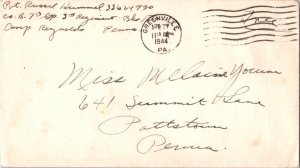 Pvt. Russel Hummel 33624790
Co. B. 7th Bn. 3rd Regiment
Camp Reynolds Penna.
GREENVILLE
1944
PA.
Free
Miss Melaine Youman
641 Summit Lane
Pottstown
Penna.